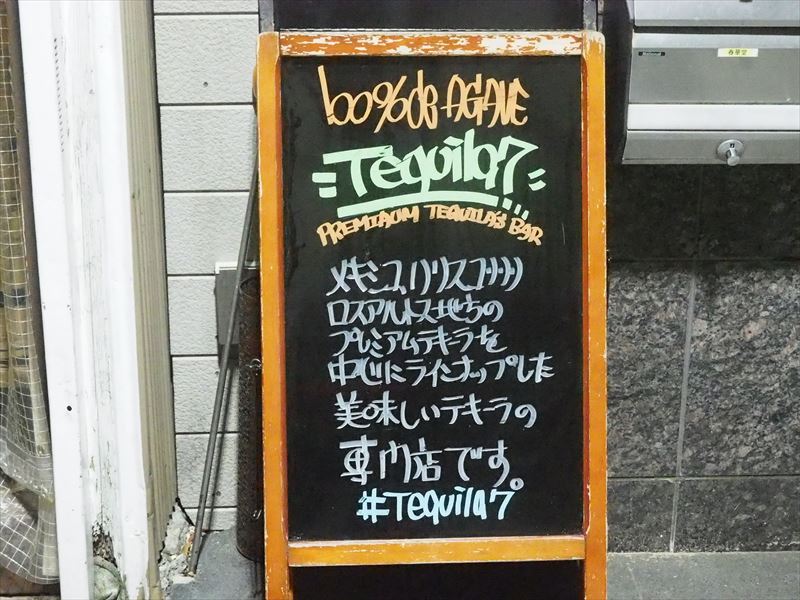 100% de AGAVE
Tequila7
PREMIAUM TEQUILA'S BAR
メキシコ、ハリスコ州
ロスアルトス地方の
プレミアムテキーラを
中心にラインナップした
美味しいテキーラの
専門店です。
#Tequila7
National